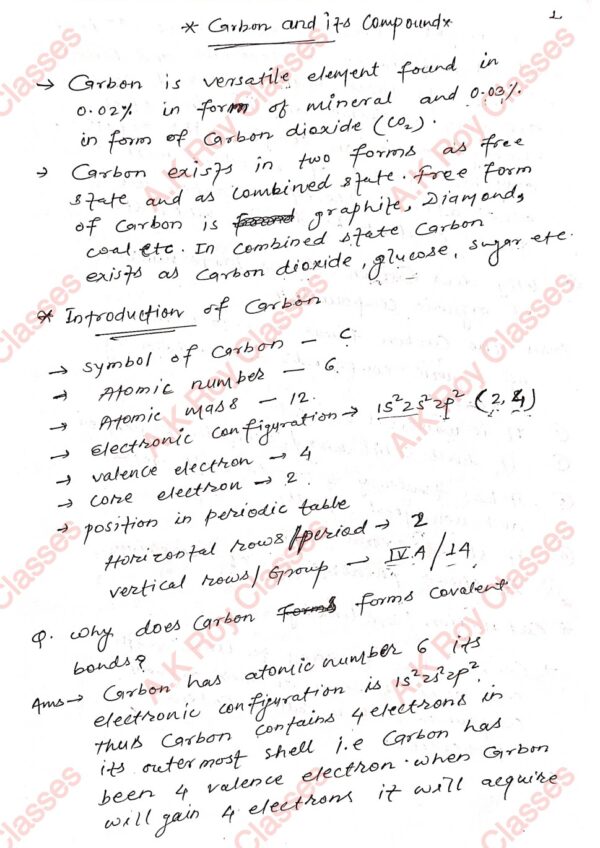 1
* Carbon and its compounds
→ Carbon is versatile element found in
0.02% in form of mineral and 0.03%
in form of Carbon dioxide (CO₂).
→ Carbon exists in two forms as free
state and as combined state. Free form
of carbon is graphite, Diamond,
coal etc. In combined state Carbon
exists as Carbon dioxide, glucose, sugar etc.
* Introduction of Carbon
→ Symbol of Carbon - C
→ Atomic number - 6
→ Atomic mass - 12.
→ Electronic configuration → 1s² 2s² 2p² (2,4)
→ valence electron → 4
→ core electron → 2.
→ position in periodic table
Horizontal rows/period → 2
vertical rows/Group → IV A/14
Q. Why does Carbon forms covalent
bonds?
Ans → Carbon has atomic number 6 its
electronic configuration is 1s² 2s² 2p².
Thus Carbon contains 4 electrons in
its outermost shell i.e Carbon has
been 4 valence electron. When Carbon
will gain 4 electrons it will acquire
A.K Roy Classes